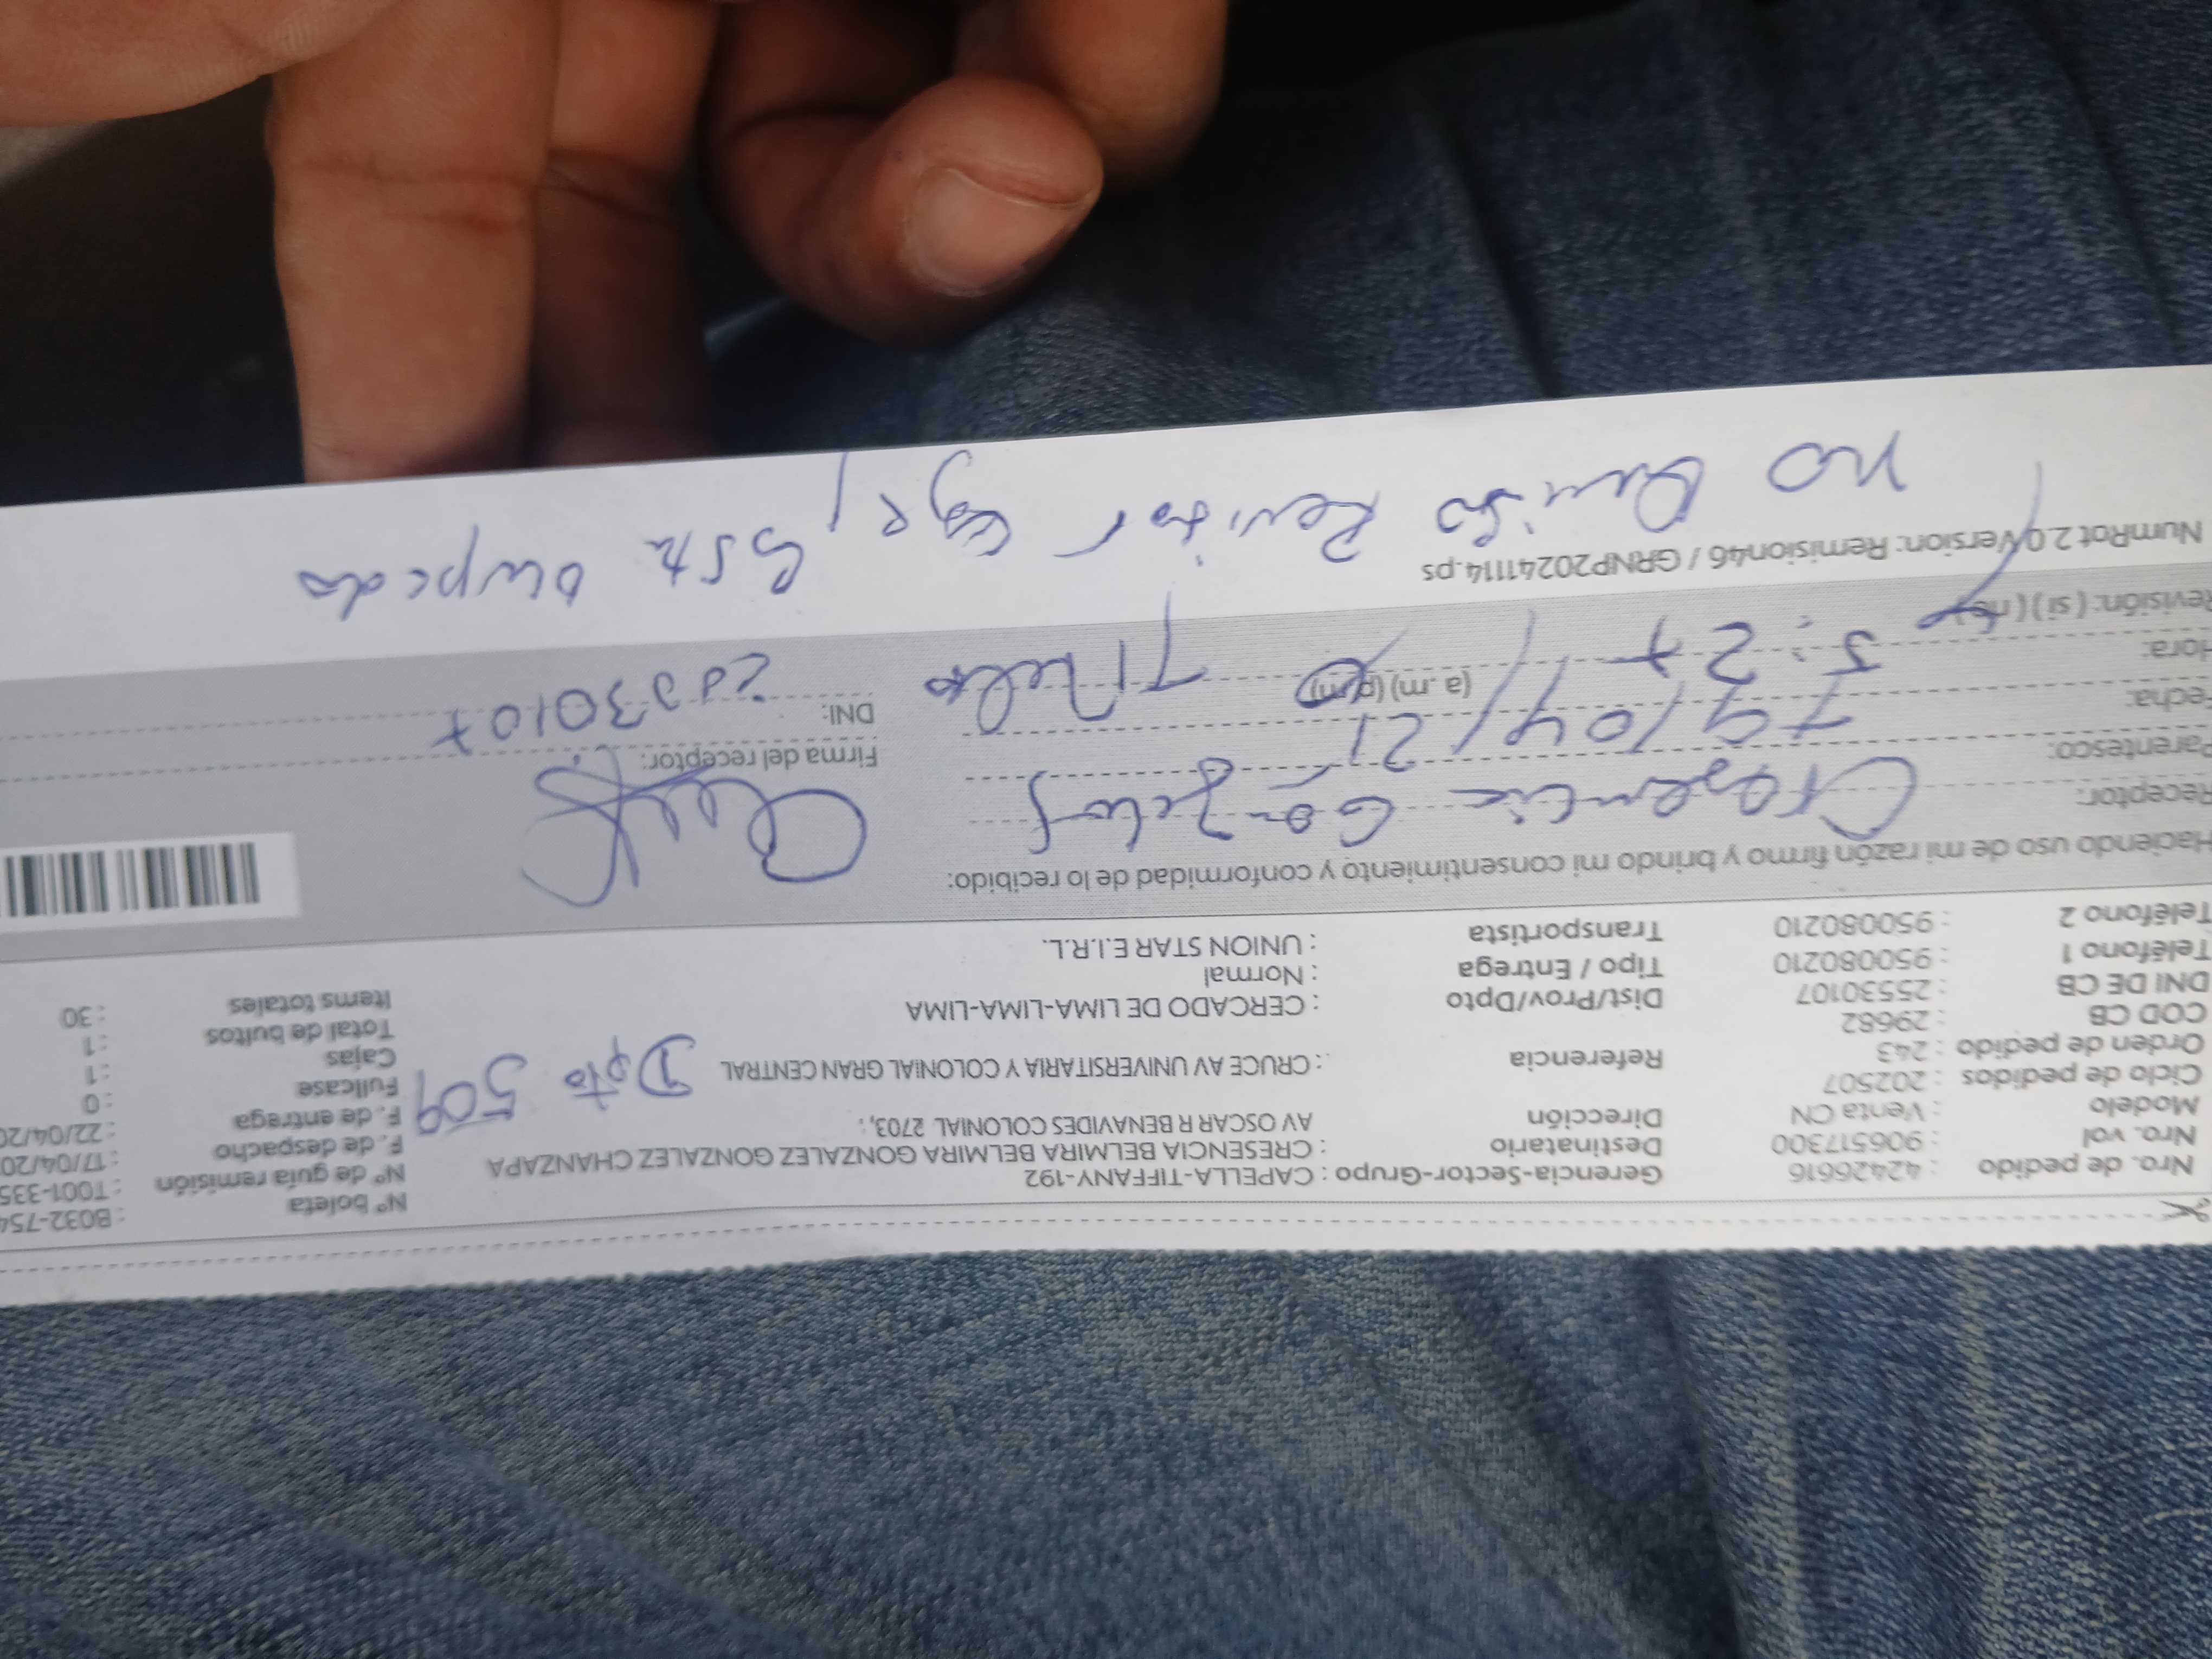 Nro. de pedido : 42426616 Gerencia-Sector-Grupo : CAPELLA-TIFFANY-192 N° boleta : B032-754
Nro. vol : 906517300 Destinatario : CRESENCIA BELMIRA BELMIRA GONZALEZ GONZALEZ CHANZAPA N° de guía remisión : T001-335
Modelo : Venta CN Dirección AV OSCAR R BENAVIDES COLONIAL 2703, : F. de despacho : 17/04/20
Ciclo de pedidos : 202507 F. de entrega : 22/04/20
Orden de pedido : 243 Referencia : CRUCE AV UNIVERSITARIA Y COLONIAL GRAN CENTRAL Dpto 509 Fullcase : 0
COD CB : 29682 Cajas : 1
DNI DE CB : 25530107 Dist/Prov/Dpto : CERCADO DE LIMA-LIMA-LIMA Total de bultos : 1
Teléfono 1 : 950080210 Tipo / Entrega : Normal Items totales : 30
Teléfono 2 : 950080210 Transportista : UNION STAR E.I.R.L.
Haciendo uso de mi razón firmo y brindo mi consentimiento y conformidad de lo recibido:
Receptor:
Parentesco: Firma del receptor:
Fecha: DNI:
Hora: 5:27 (a.m) (p.m)
Revisión: (si) (no)
NumRot 2.0 Version: Remision46 / GRNP20241114.ps
no Revisar